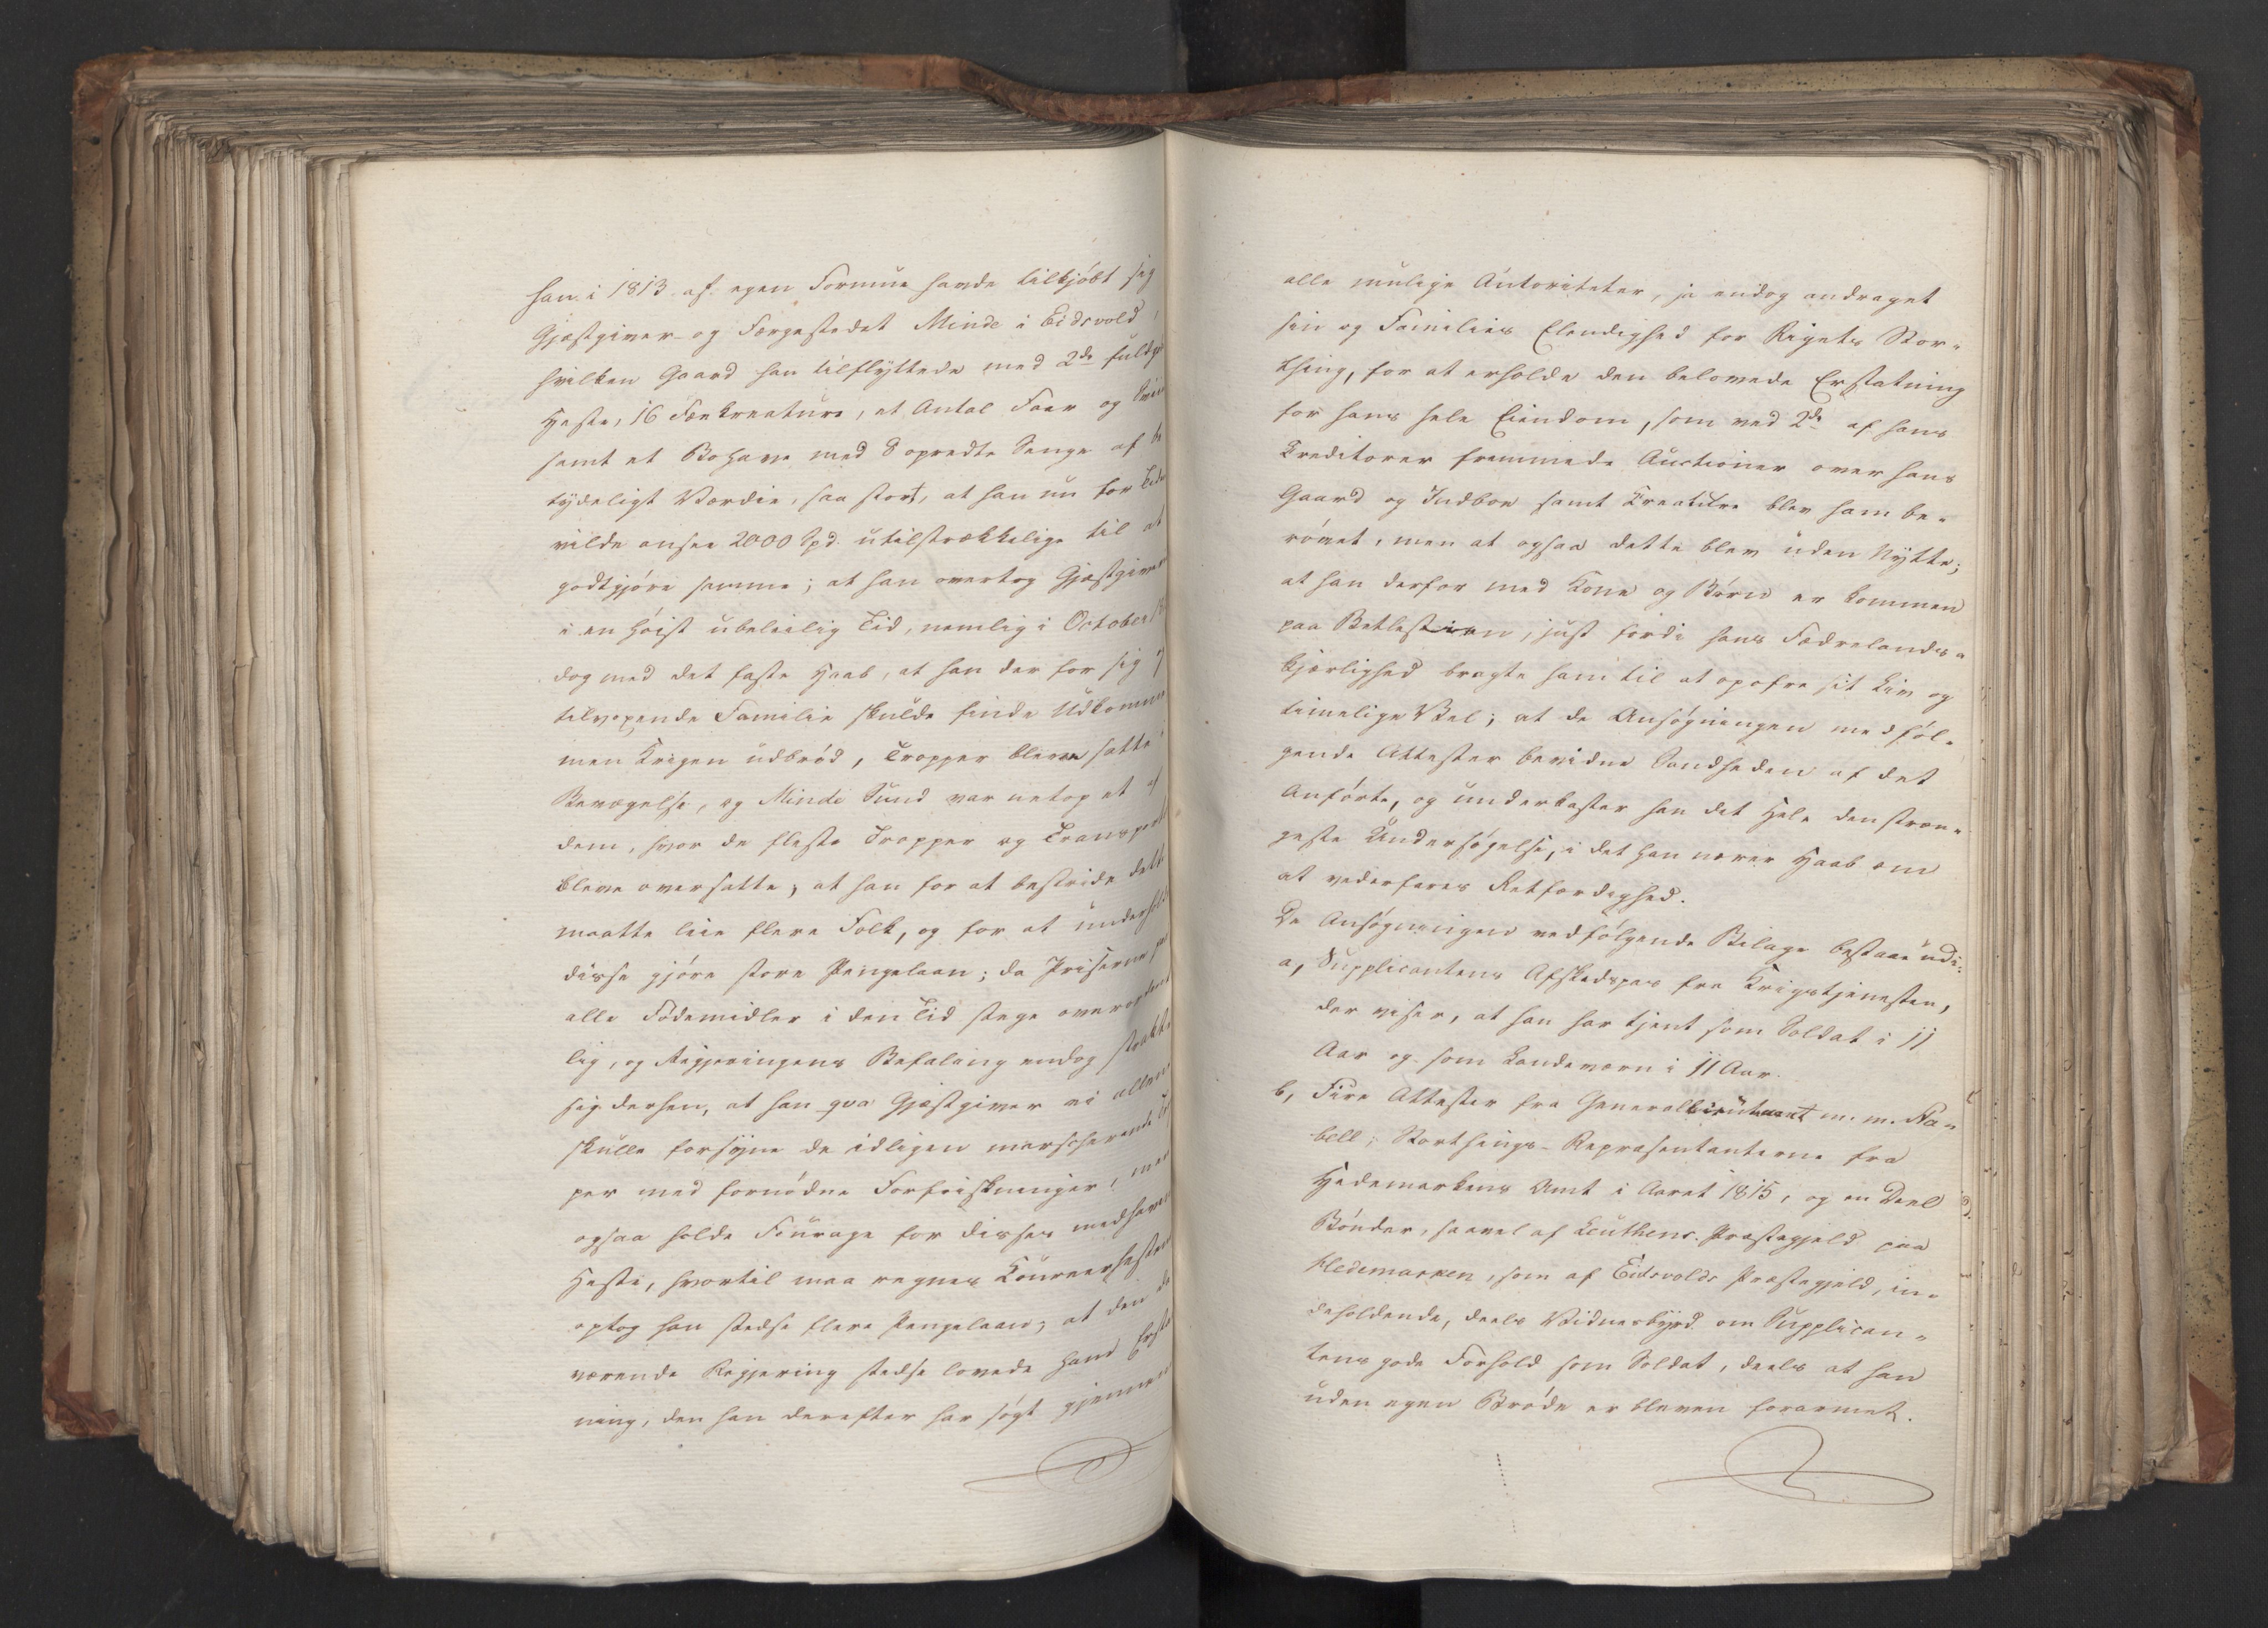 han i 1813 af egen Formue havde tilkjøbt sig
Gjæstgiver- og Færgestedet Minde i Eidsvold,
hvilken Gaard han tilflyttede med 2de
Heste, 16 Fæekreature, et Antal Faar og
samt et Bohave med 8 opredte Senge af be
tydeligt Værdie, saa stort, at han nu for
vilde ansee 2000 Spd. utilstrækkelige til at
godtgjøre samme; at han overtog Gjæstgiver
i en høist ubeleilig Tid, nemlig i October
dog med det faste Haab, at han der for sig
tilvoxende Familie skulde finde Udkomme
men Krigen udbrød, Tropper bleve satte i
Bevægelse, og Minde Sund var netop et af
dem, hvor de fleste Tropper og Transport
bleve oversatte; at han for at bestride dette
maatte leie flere Folk, og for at underhold
disse gjøre store Pengelaan; da Priserne paa
alle Fødemidler i den Tid stege overordent
lig, og Regjeringens Befaling endog strakte
sig derhen, at han qva Gjæstgiver ei allene
skulle forsyne de idligen marscherende
per med fornødne Forfriskninger, men
ogsaa holde Fourage for disses medhavende
Heste, hvortil maa regnes Coureerhestene
optog han stedse flere Pengelaan; at den da
værende Regjering stedse lovede ham Erstat
ning, den han derefter har søgt gjennem
alle mulige Autoriteter, ja endog andraget
sin og Families Elendighed for Rigets Stor-
thing, for at erholde den belovede Erstatning
for hans hele Eiendom, som ved 2de af hans
Creditorer fremmede Auctioner over hans
Gaard og Indboe samt Creature blev ham be-
røvet, men at ogsaa dette blev uden Nytte;
at han derfor med Kone og Børn er kommen
paa Betlestien, just fordi hans Fædrelands-
kjærlighed bragte ham til at opofre sit Liv og
timelige Vel; at de Ansøgningen medføl-
gende Attester bevidne Sandheden af det
Anførte, og underkaster han det Hele den stræn-
geste Undersøgelse, i det han nærer Haab om
at vederfares Retfærdighed.
De Ansøgningen vedfølgende Bilage bestaae udi:
a, Supplicantens Afskedspas fra Krigstjenesten,
der viser, at han har tjent som Soldat i 11
Aar og som Landeværn i 11 Aar.
b, Fire Attester fra Generallieutnant m. m. Sta-
bell; Storthings-Repræsentanterne fra
Hedemarkens Amt i Aaret 1815, og en Deel
Bønder, saavel af Leuthens Præstegjeld paa
Hedemarken, som af Eidsvolds Præstegjeld, in-
deholdende, deels Vidnesbyrd om Supplican-
tens gode Forhold som Soldat, deels at han
uden egen Brøde er bleven forarmet.